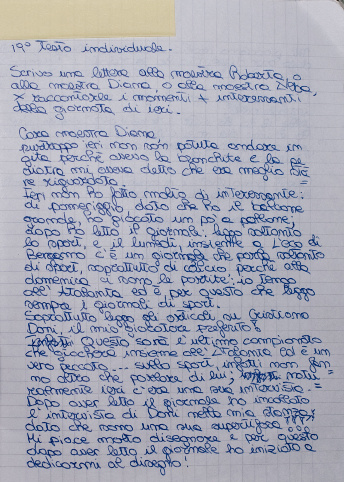 19° Testo individuale.
Scrivo una lettera alla maestra Roberta, o
alla maestra Diana, o alla maestra Debo,
x raccontare i momenti + interessanti
della giornata di ieri.
Cara maestra Diana,
purtroppo ieri non non potuta andare in
gita perché avevo la bronchite e la pe=
diatra mi aveva detto che era meglio sta=
re riguardata.
Ieri non ho fatto molto di interessante:
di pomeriggio, dato che ho il balcone
grande, ho giocato un po' a pallone,
dopo ho letto il giornale: leggo soltanto
lo sport, e il lunedì, insieme a L'eco di
Bergamo c'è un giornale che parla soltanto
di sport, soprattutto di calcio, perché alla
domenica ci sono le partite: io tengo
all'Atalanta ed è per questo che leggo
sempre i giornali di sport.
Soprattutto leggo gli articoli su Cristiano
Doni, il mio giocatore preferito!
Questo sarà l'ultimo campionato
che giocherà insieme all'Atalanta ed è un
vero peccato... sullo sport, infatti non fan=
no altro che parlare di lui; natu=
ralmente ieri c'era una sua intervista.
Dopo aver letto il giornale ho incollato
l'intervista di Doni nella mia stanza,
dato che sono una sua supertifosa!!!
Mi piace molto disegnare e per questo
dopo aver letto il giornale ho iniziato a
dedicarmi al disegno!